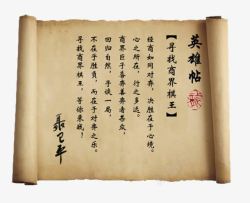 英雄帖
【寻找商界棋王】
经商如同对弈，决胜在于心境。
心之所在，行之多远。
商界巨子善弈者甚众，
回归自然，手谈一局，
不在乎胜负，而在于对弈之乐。
寻找商界棋王，等你来战！
聂卫平